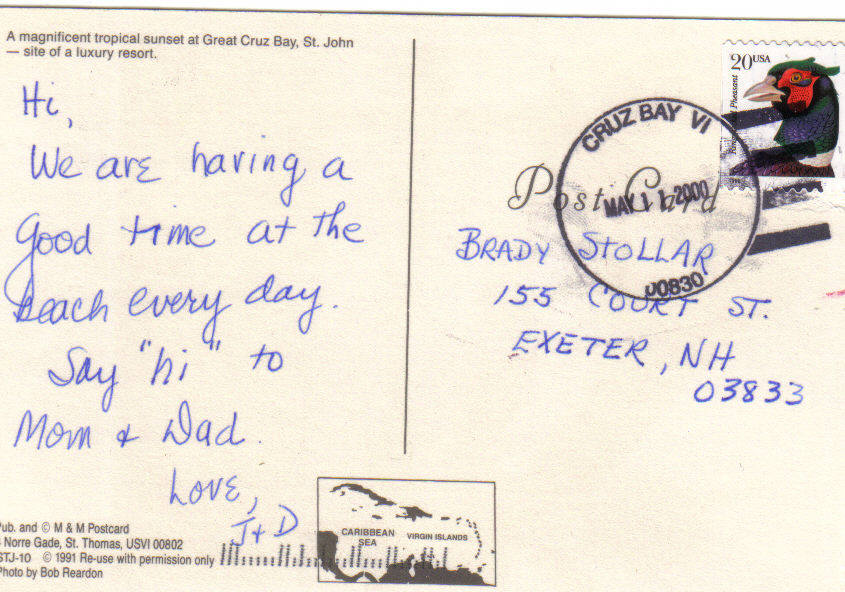 A magnificent tropical sunset at Great Cruz Bay, St. John
— site of a luxury resort.
Hi,
We are having a
Good time at the
beach every day.
Say "hi" to
Mom & Dad.
Love,
J + D
Pub. and © M & M Postcard
Norre Gade, St. Thomas, USVI 00802
STJ-10 © 1991 Re-use with permission only
Photo by Bob Reardon
CARIBBEAN
SEA
VIRGIN ISLANDS
20 USA
Pheasant
CRUZ BAY VI
MAY 11 2000
00830
Post Card
BRADY STOLLAR
155 COURT ST.
EXETER, NH
03833